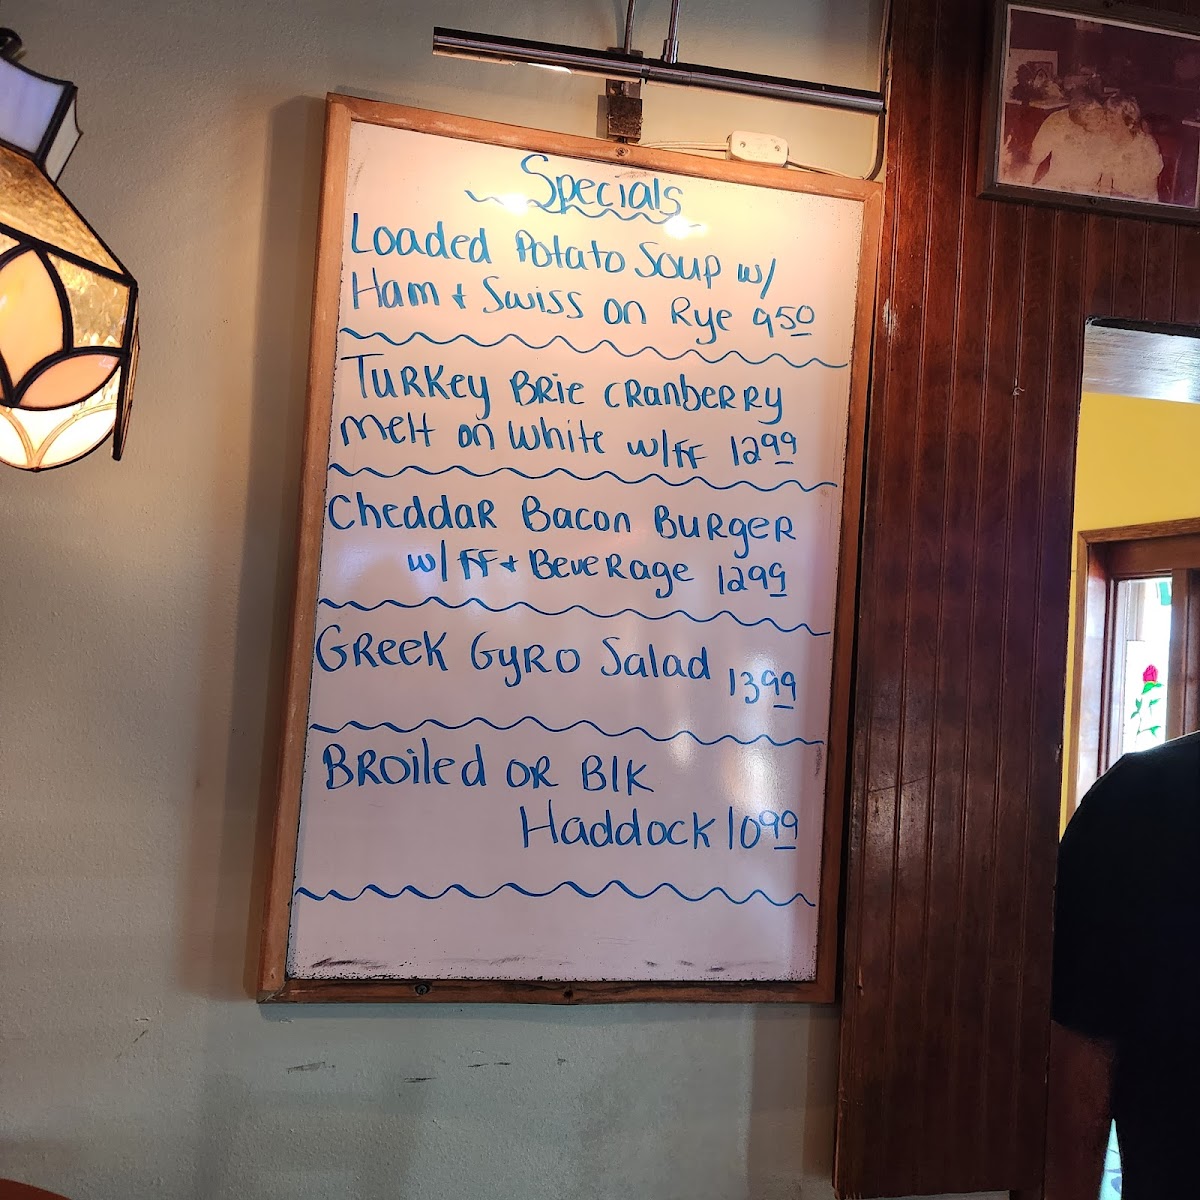 Specials
Loaded Potato Soup w/
Ham + Swiss on Rye 9.50
Turkey Brie Cranberry
Melt on White w/ FF 12.99
Cheddar Bacon Burger
w/ FF + Beverage 12.99
Greek Gyro Salad 13.99
Broiled or Blk
Haddock 10.99